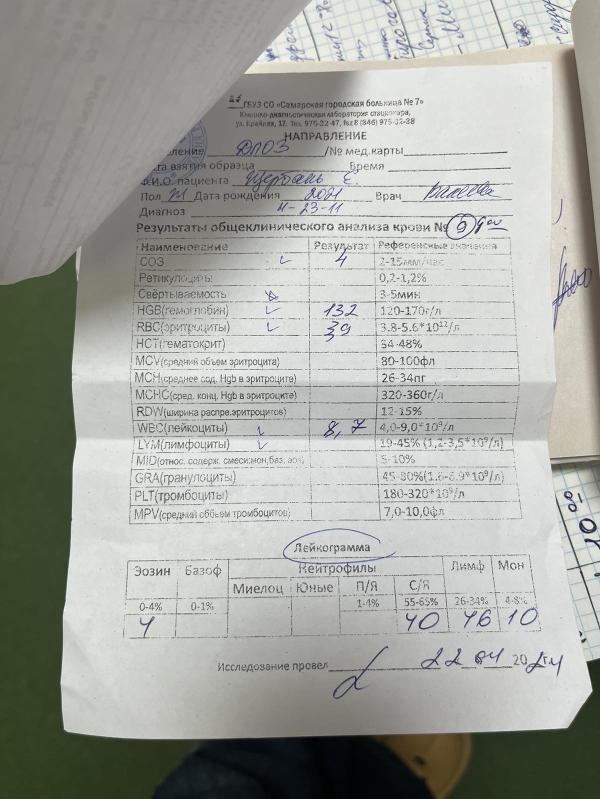 ГБУЗ СО «Самарская городская больница № 7»
Клинико-диагностическая лаборатория стационара,
ул. Крайняя, 17. Тел. 975-22-47, fax 8 (846) 975-32-38
НАПРАВЛЕНИЕ
/№ мед.карты
та взятия образца Время
Ф.И.О. пациента Щербань Е.
Пол Ж Дата рождения 2021 Врач
Диагноз 4-23-11
Результаты общеклинического анализа крови №
Наименование Результат Референсные значения
СОЭ ✓ 4 2-15мм/час
Ретикулоциты 0,2-1,2%
Свёртываемость 3-5мин
HGB(гемоглобин) ✓ 132 120-170г/л
RBC(эритроциты) ✓ 39 3.8-5.6*10¹²/л
HCT(гематокрит) 34-48%
MCV(средний объем эритроцита) 80-100фл
MCH(среднее сод. Hgb в эритроците) 26-34пг
MCHC(сред. конц. Hgb в эритроците) 320-360г/л
RDW(ширина распре.эритроцитов) 12-15%
WBC(лейкоциты) ✓ 8,7 4,0-9,0*10⁹/л
LYM(лимфоциты) ✓ 19-45% (1,2-3,5*10⁹/л)
MID(относ. содерж. смеси:мон,баз, эоз) 5-10%
GRA(гранулоциты) 45-80%(1.6-6.9*10⁹/л)
PLT(тромбоциты) 180-320*10⁹/л
MPV(средний объем тромбоцитов) 7,0-10,0фл
Лейкограмма
Эозин Базоф Нейтрофилы Лимф Мон
Миелоц Юные П/Я С/Я
0-4% 0-1% 1-4% 55-65% 26-34% 4-8%
4 40 46 10
Исследование провел 22 04 2024